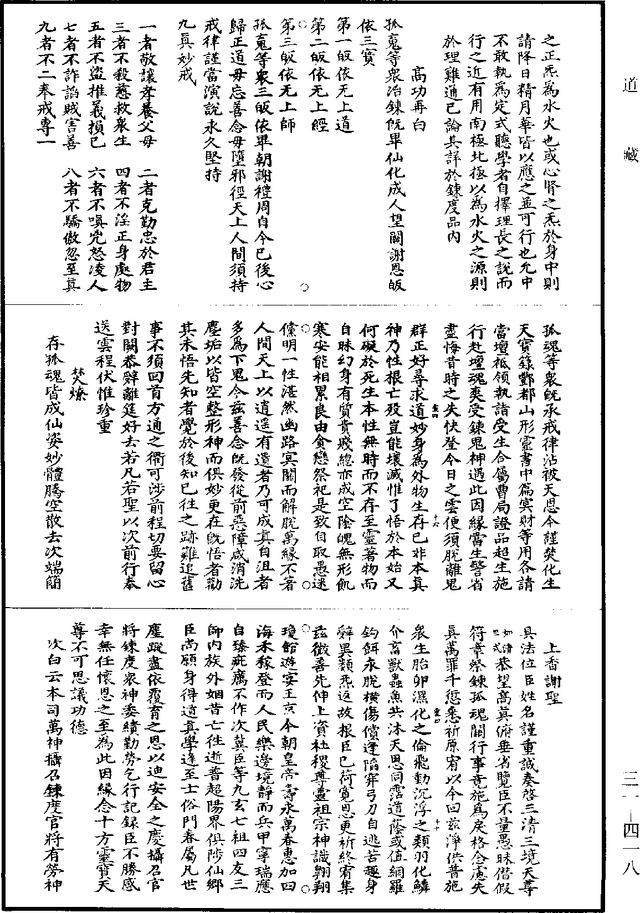 道藏
三一—四一八
之正炁為水火也或心腎之炁於身中則
請降日精月華皆以應之並可行也允中
不敢執為定式聽學者自擇理長之說而
行之近有用南極北極以為水火之源則
於理雖通已論其詳於鍊度品內
高功再白
孤䰟等衆冶鍊旣畢仙化成人望闕謝恩皈
依三寳
第一皈依无上道
第二皈依无上經
第三皈依无上師
孤䰟等衆三皈依畢朝謝禮周自今已後心
歸正道毋忘善念毋墮邪徑天上人間須持
戒律謹當演說永久堅持
九真妙戒
一者敬讓孝養父母 二者克勤忠於君主
三者不殺慈救衆生 四者不淫正身處物
五者不盜推義損己 六者不嗔兇怒凌人
七者不詐諂賊害善 八者不驕傲忽至真
九者不二奉戒專一
孤魂等衆旣承戒律沾被天恩今謹焚化生
天寳籙酆都山形靈書中篇寅財等用各請
當壇祗領執詣受生合屬曹局證品超生施
行赴壇魂爽受鍊鬼神遇此因緣當生警省
盡悔昔時之失快登今日之雲便須脫離鬼
群正好尋求道妙身為外物生存已非本真
神乃性根亡歿豈能壞滅惟了悟於本始又
何礙於死生本性無時而不存至靈著物而
自昧幻身有質貴賤緫亦成空陰魄無形飢
寒安能相累良由貪戀祭祀是致自取愚迷
儻明一性湛然幽路冥關而解脫萬緣不著
人間天上以逍遥有道者乃可成真自沮者
多為下鬼今兹善念旣發從前惡障咸消洗
塵垢以皆空整形神而俱妙更在旣悟者勸
其未悟先知者覺於後知已往之跡難追舊
事不須回首方通之衢可涉前程切要留心
對闕恭辤離筵好去若凡若聖以次前行奉
送雲程伏惟珍重
焚燎
存孤魂皆成仙姿妙體騰空散去次端簡
上香謝聖
具法位臣姓名謹重誠奏啓三清三境天尊
恭望高真俯垂省覽臣不量愚昧借假
符章祭鍊孤魂闗行事竟施為戾格念慮失
真萬罪千愆悉祈原宥以今回兹淨供普施
衆生胎卵濕化之倫飛動沉浮之類羽化鱗
介畜獸蟲魚共沐天恩同霑道蔭或值網羅
鈎餌永脫横傷儻逢䧟穽弓刀自逃苦趣身
辤異類炁返故根臣已荷寛恩更祈終宥集
兹微善先伸上資社稷尊靈祖宗神識翱翔
瓊館遊宴玉京今朝皇帝壽永萬春惠加四
海禾稼登而人民樂邊境靜而兵甲寧瑞應
自臻疵癘不作次冀臣等九玄七祖四友三
師内族外姻昔亡往逝普超陽界俱陟仙鄉
臣尚願身得道真學逢至士俗門眷屬凡世
塵蹤盡依覆育之恩以迪安全之慶攝召官
將鍊度衆神委績勤勞乞行記録臣不勝感
幸無任懷恩之至為此因緣念十方靈寳天
尊不可思議功德
次白云本司萬神攝召鍊度官將有勞神